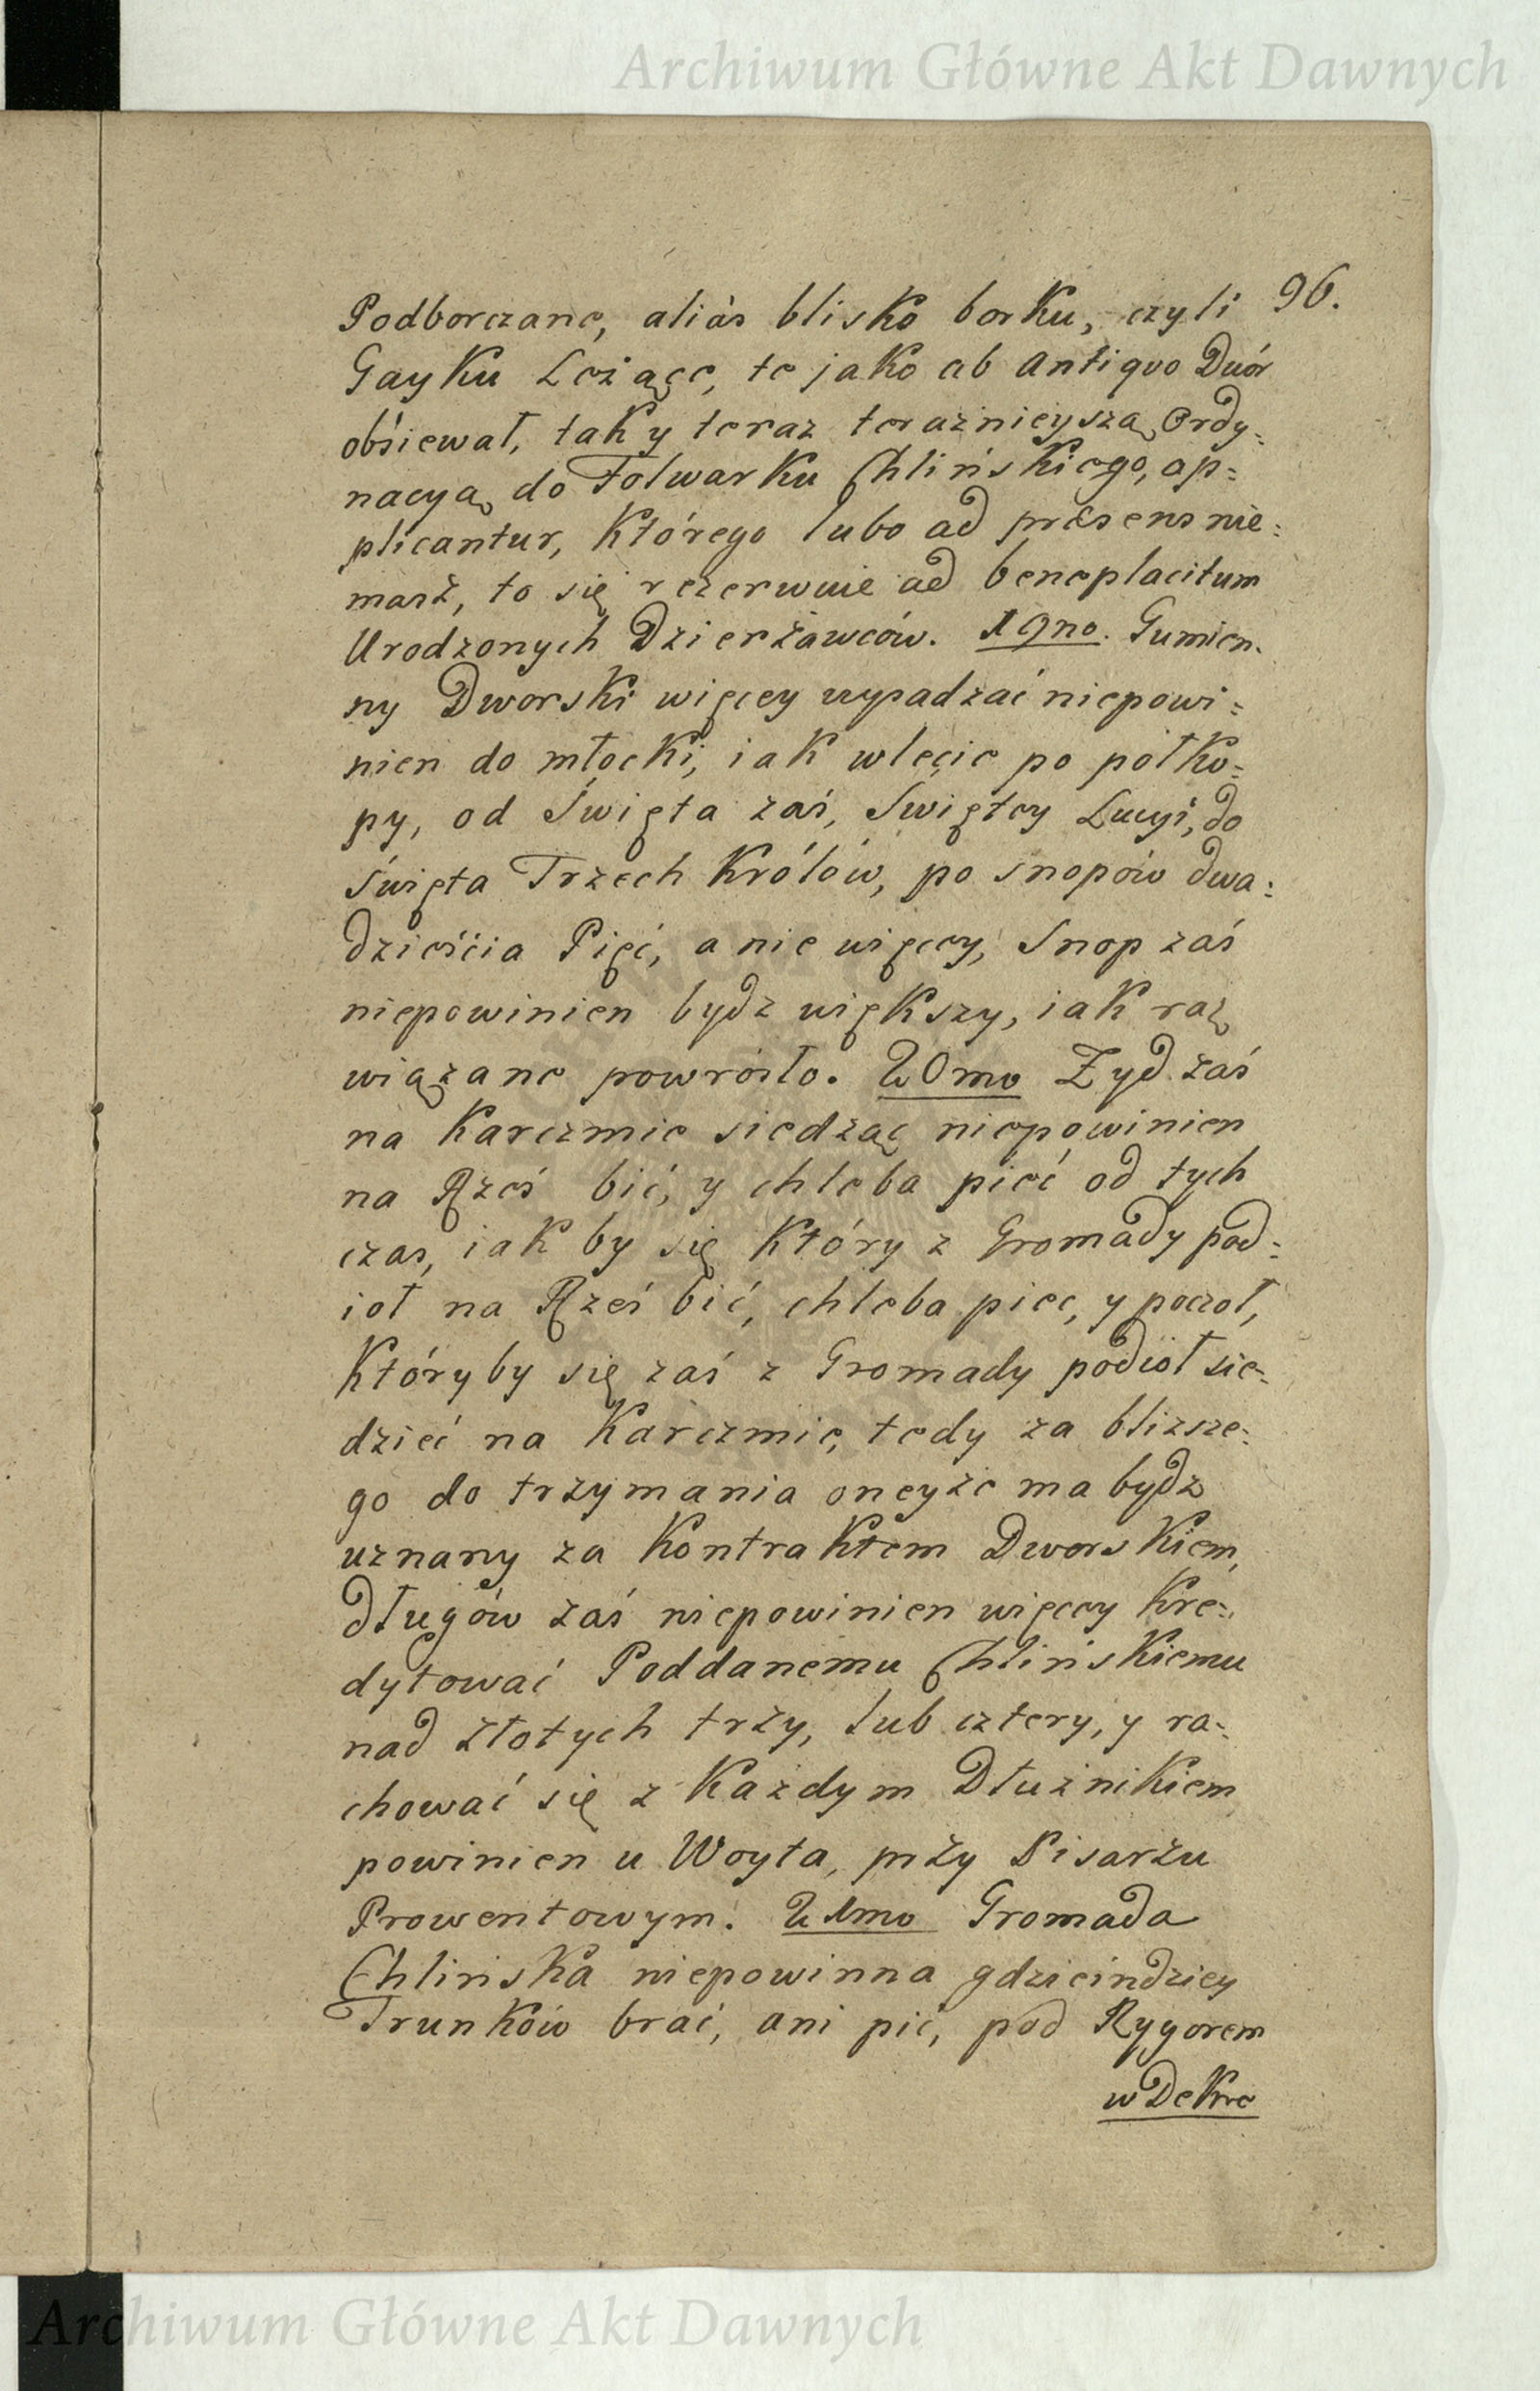 Archiwum Główne Akt Dawnych
96.
Podborczane, aliàs blisko borku, czyli
Gayku Leżące, te jako ab Antiquo Dwór
obsiewał, tak y teraz teraznieyszą Ordy=
nacyą do Folwarku Chlińskiego, ap=
plicantur, Którego lubo ad præsens nie=
masz, to się rezerwuie ad beneplacitum
Urodzonych Dzierżawców. 19no. Gumien=
ny Dworski więcey wysadzać niepowi=
nien do młocki, iak wlecie po półko=
py, od Święta zaś, Swiętey Lucyi, do
Święta Trzech Królów, po snopów dwa=
dzieścia Pięć, a nie więcey, Snop zaś
niepowinien bydz większy, iak raz
wiązane powrósło. 20mo Zyd zaś
na Karczmie siedząc niepowinien
na Rześ bić, y chleba pieć od tych
czas, iak by się Który z Gromady pod=
ioł na Rześ bić, chleba piec, y poczoł,
Któryby się zaś z Gromady podioł sie=
dzieć na Karczmie, tedy za blizsze=
go do trzymania oneyże ma bydz
uznany za Kontraktem Dworskiem,
długów zaś niepowinien więcey Kre=
dytować Poddanemu Chlińskiemu
nad złotych trzy, lub cztery, y ra=
chować się z Każdym Dłużnikiem
powinien u Woyta, przy Pisarzu
Prowentowym. 21mo Gromada
Chlińska niepowinna gdzieindziey
Trunków brać, ani pić, pod Rygorem
w Dekre
Archiwum Główne Akt Dawnych